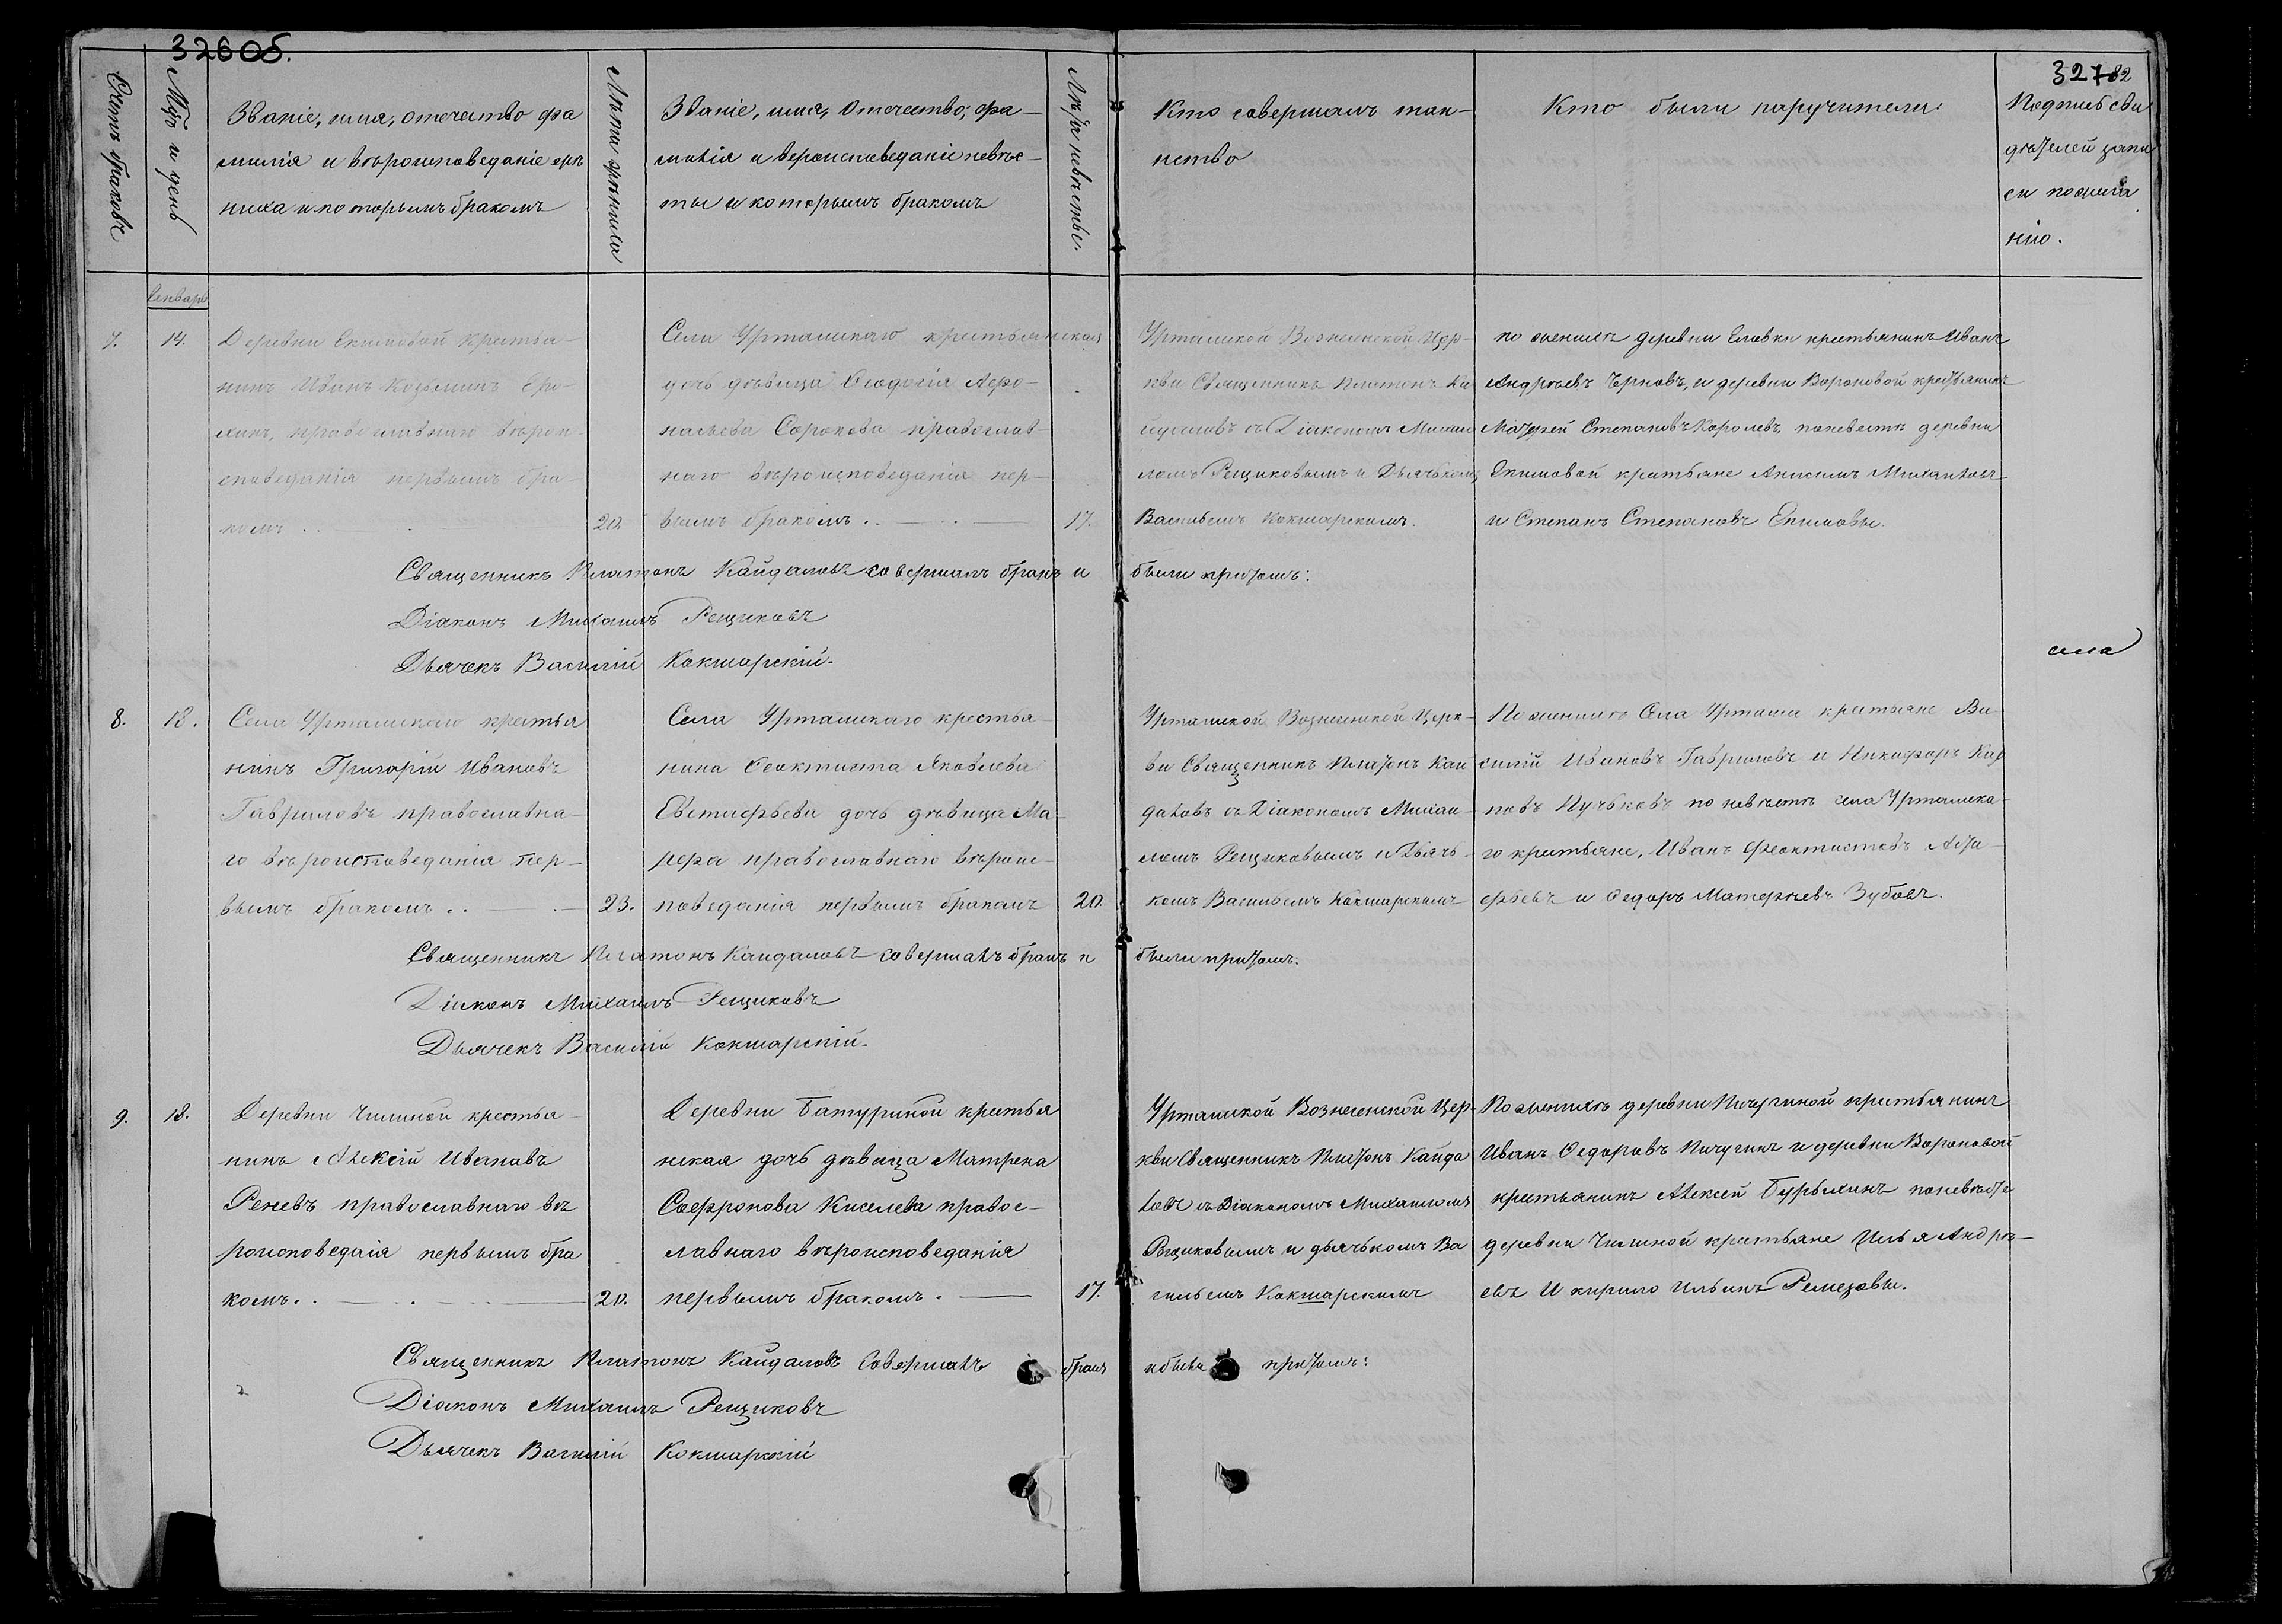 326 об.
32782
Счетъ браковъ
Мцъ и день
Званіе, имя, отечество фа
милія и вѣроисповеданіе же
ниха и которымъ бракомъ
Лѣта жениха
Званіе, имя, отечество, фа–
милія и вероисповеданіе невѣс–
ты и которымъ бракомъ
Лѣта невѣсты.
Кто совершалъ таи–
нство
Кто были паручители
Подпись сви
дѣтелей запи
си по жела
нію.
Генварь
7.
14.
Деревни Екимовой крестья–
нинъ Иванъ Козьминъ Еро–
хинъ, православнаго вѣрои
споведанія первымъ бра–
комъ . .
20.
Села Урталискаго крестьянская
дочь дѣвица Ѳеодосія Афо–
насьева Сорокова православ–
наго вѣроисповеданія пер–
вымъ бракомъ . .
17.
Урташской Вознесенской Цер–
кви Священникъ Платонъ Ка
йдаловъ съ Діакономъ Михаи
ломъ Рещиковымъ и Дьячькомъ
Васильемъ Кокшарскимъ.
по женихѣ деревни Еловки крестьянинъ Иванъ
Андреевъ Черновъ, и деревни Вороновой крестьянинъ
Матфей Степановъ Королевъ, поневестѣ деревни
Екимовой крестьяне Анисимъ Михаиловъ
и Степанъ Степановъ Екимовы.
Священникъ Платонъ Кайдаловъ совершалъ бракъ и были притомъ:
Діаконъ Михаилъ Рещиковъ
Дьячекъ Василій Кокшарскій.
села
8.
18.
Села Урташскаго крестья
нинъ Григорій Ивановъ
Гавриловъ православна–
го вѣроисповеданія пер–
вымъ бракомъ . .
23.
Села Урташскаго крестья–
нина Ѳеоктиста Яковлева
Евстафьева дочь дѣвица Ма–
рфа православнаго вѣроис–
поведанія первымъ бракомъ
20.
Урташской Вознесенской Церк–
ви Священникъ Платонъ Каи
даловъ съ Діакономъ Михаи–
ломъ Рещиковымъ и Дьячь–
комъ Васильемъ Кокшарскимъ
По женихѣ Села Урташа крестьяне Ва–
силій Ивановъ Гавриловъ и Никифоръ Кар
повъ Пучьковъ по невѣстѣ села Урташска–
го крестьяне, Иванъ Феоктистовъ Аста–
фьевъ и Ѳедоръ Матфеевъ Зубовъ.
Священникъ Платонъ Каидаловъ совершалъ бракъ и были притомъ:
Діаконъ Михаилъ Рещиковъ
Дьячекъ Василій Кокшарскій.
9.
18.
Деревни Чилиной крестья–
нинъ Алексій Ивановъ
Реневъ православнаго вѣ
роисповеданія первымъ бра
комъ . .
20.
Деревни Батуриной крестья
нская дочь дѣвица Матрена
Софронова Киселева правос–
лавнаго вѣроисповеданія
первымъ бракомъ.
17.
Урташской Вознесенской Цер–
кви Священникъ Платонъ Кайда
ловъ съ Діакономъ Михаиломъ
Рещиковымъ и дьячькомъ Ва
сильемъ Кокшарскимъ
По женихѣ деревни Пичугиной крестьянинъ
Иванъ Ѳедоровъ Пичугинъ и деревни Вороновой
крестьянинъ Алексей Бурыхинъ поневѣсте
деревни Чилиной крестьяне Илья Андре–
евъ И кирило Ильинъ Ремезовы.
Священникъ Платонъ Кайдаловъ совершалъ бракъ и были притомъ:
Діаконъ Михаилъ Рещиковъ
Дьячекъ Василій Кокшарскій